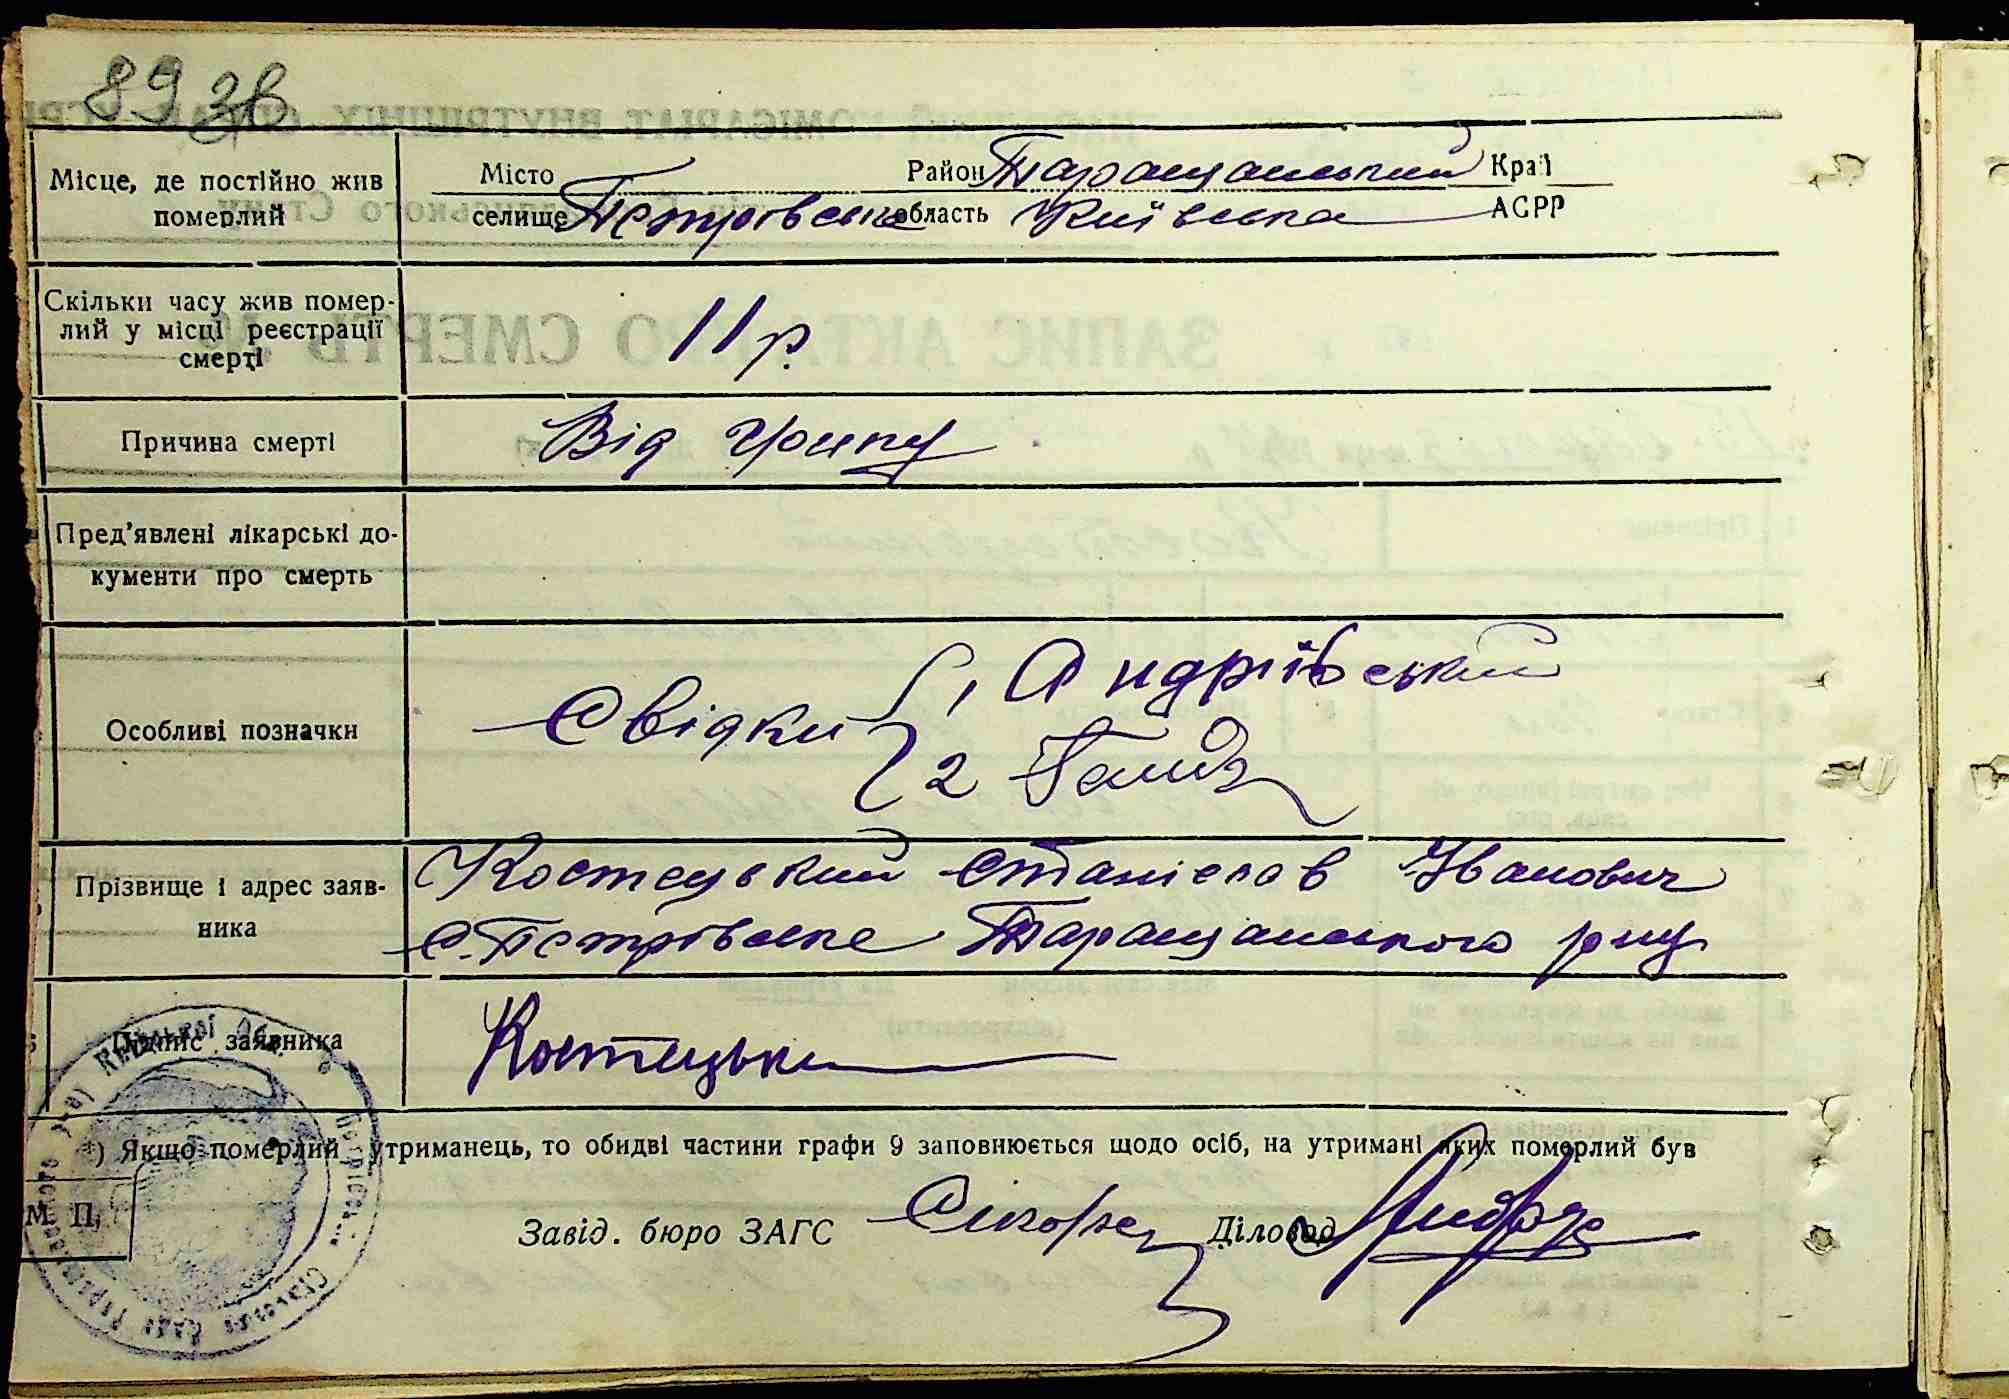 89 зв
Місце, де постійно жив померлий
Місто Район Таращанський Край
селище Петрівське область Київська АСРР
Скільки часу жив помер-
лий у місці реєстрації
смерті
11 р.
Причина смерті Від грипу
Пред'явлені лікарські до-
кументи про смерть
Особливі позначки
Свідки 1, Андріївський
2
Прізвище і адрес заяв-
ника
Костецький Станіслав Іванович
с. Петрівське Таращанського р-ну
Підпис заявника Костецьки
*) Якщо померлий утриманець, то обидві частини графи 9 заповнюється щодо осіб, на утримані яких померлий був
М. П.
Завід. бюро ЗАГС Діловод